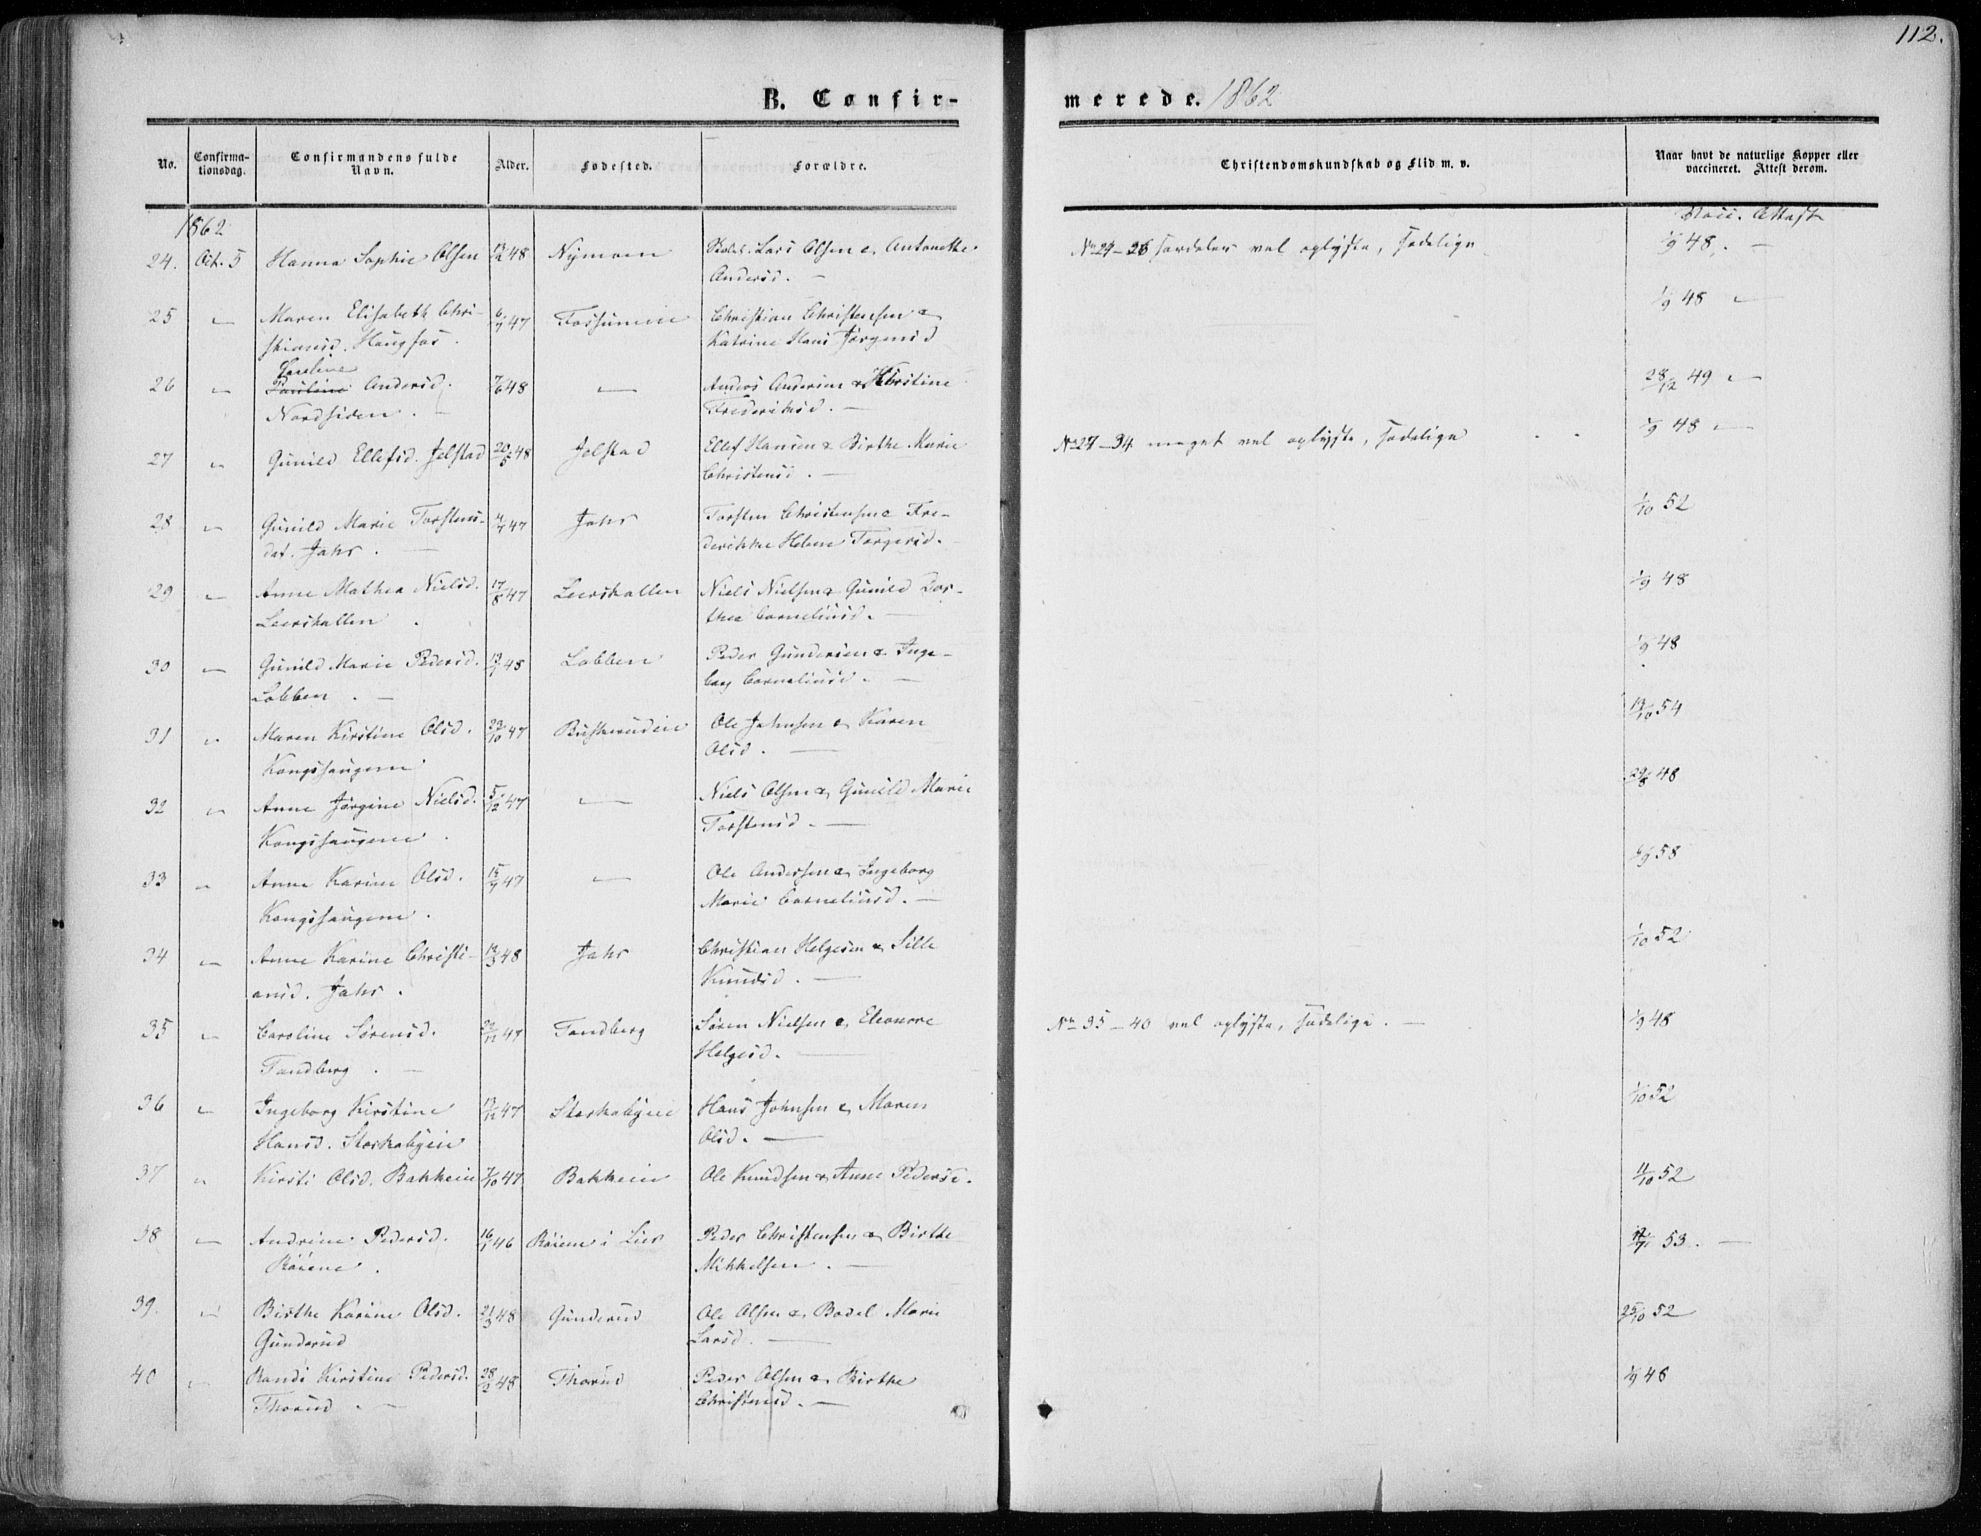 112.
B. Confirmerede. 1862
No.
Confirma-
tionsdag.
Confirmandens fulde
Navn.
Alder.
Fødested.
Forældre.
Christendomskundskab og Flid m. v.
Naar havt de naturlige Kopper eller
vaccineret. Attest derom.
1862
Vacc. Attest
24. Oct. 5 Hanna Sophie Olsen 13/12 48 Nymoen Lars Olsen & Antonette
Andersd. —
No 24–26 særdeles vel oplyste, sædelige
1/9 48. —
25 " Maren Elisabeth Chri-
stiansd. Haugfos. 6/7 47 Fossumeie Christian Christensen &
Katrine Hans Jørgensd
1/9 48 "
26 " Pauline Andersd.
Nordsiden. 7/6 48 — Anders Andersen & Kirstine
Frederiksd. —
28/12 49 "
27 " Gunild Ellefsd. Jelstad 20/5 48 Jelstad Ellef Hansen & Birthe Marie
Christensd. —
No 27–34 meget vel oplyste, sædelige
1/9 48 "
28 " Gunild Marie Torstens-
dat. Jahr. — 4/7 47 Jahr Torsten Christensen & Fre-
derikke Helene Torgersd. —
1/10 52
29 " Anne Mathea Nielsd.
Leerskallen. 17/8 47 Leerskallen Niels Nielsen & Gunild Dor-
thea Corneliusd. —
1/9 48
30 " Gunild Marie Pedersd.
Lobben. — 13/1 48 Lobben Peder Gundersen & Inge-
borg Corneliusd. —
1/9 48
31 " Maren Kirstine Olsd.
Kongshaugene. 23/10 47 Buskerudeie Ole Johnsen & Karen
Olsd. —
13/10 54
32 " Anne Jørgine Nielsd.
Kongshaugene. 5/12 47 — Niels Olsen & Gunild Marie
Torstensd. —
29/8 48
33 " Anne Karine Olsd.
Kongshaugene. 15/9 47 — Ole Andersen & Ingeborg
Marie Corneliusd. —
58
34 " Anne Karine Christi-
ansd. Jahr. 13/3 48 Jahr Christian Helgesen & Sille
Knudsd. —
1/10 52
35 " Caroline Sørensd.
Tandberg. — 47 Tandberg Søren Nielsen & Eleonore
Helgesd. —
No 35–40 vel oplyste, sædelige. —
1/9 48
36 " Ingeborg Kirstine
Hansd. Storkabyeie 13/12 47 Storkabyeie Hans Johnsen & Maren
Olsd. —
1/10 52
37 " Kirsti Olsd. Bakkeeie 7/10 47 Bakkeeie Ole Knudsen & Anne Pedersd.
11/10 52
38 " Andrine Pedersd.
Röiene. 16/1 46 Röiene i Lier Peder Christensen & Birthe
Mikkelsen. —
53. —
39. " Birthe Karine Olsd.
Gunderud 21/3 48 Gunderud Ole Olsen & Bodel Marie
Larsd. —
25/10 52
40 " Randi Kirstine Pedersd.
Thorud. — 28/2 48 Thorud Peder Olsen & Birthe
Christensd. —
1/9 48